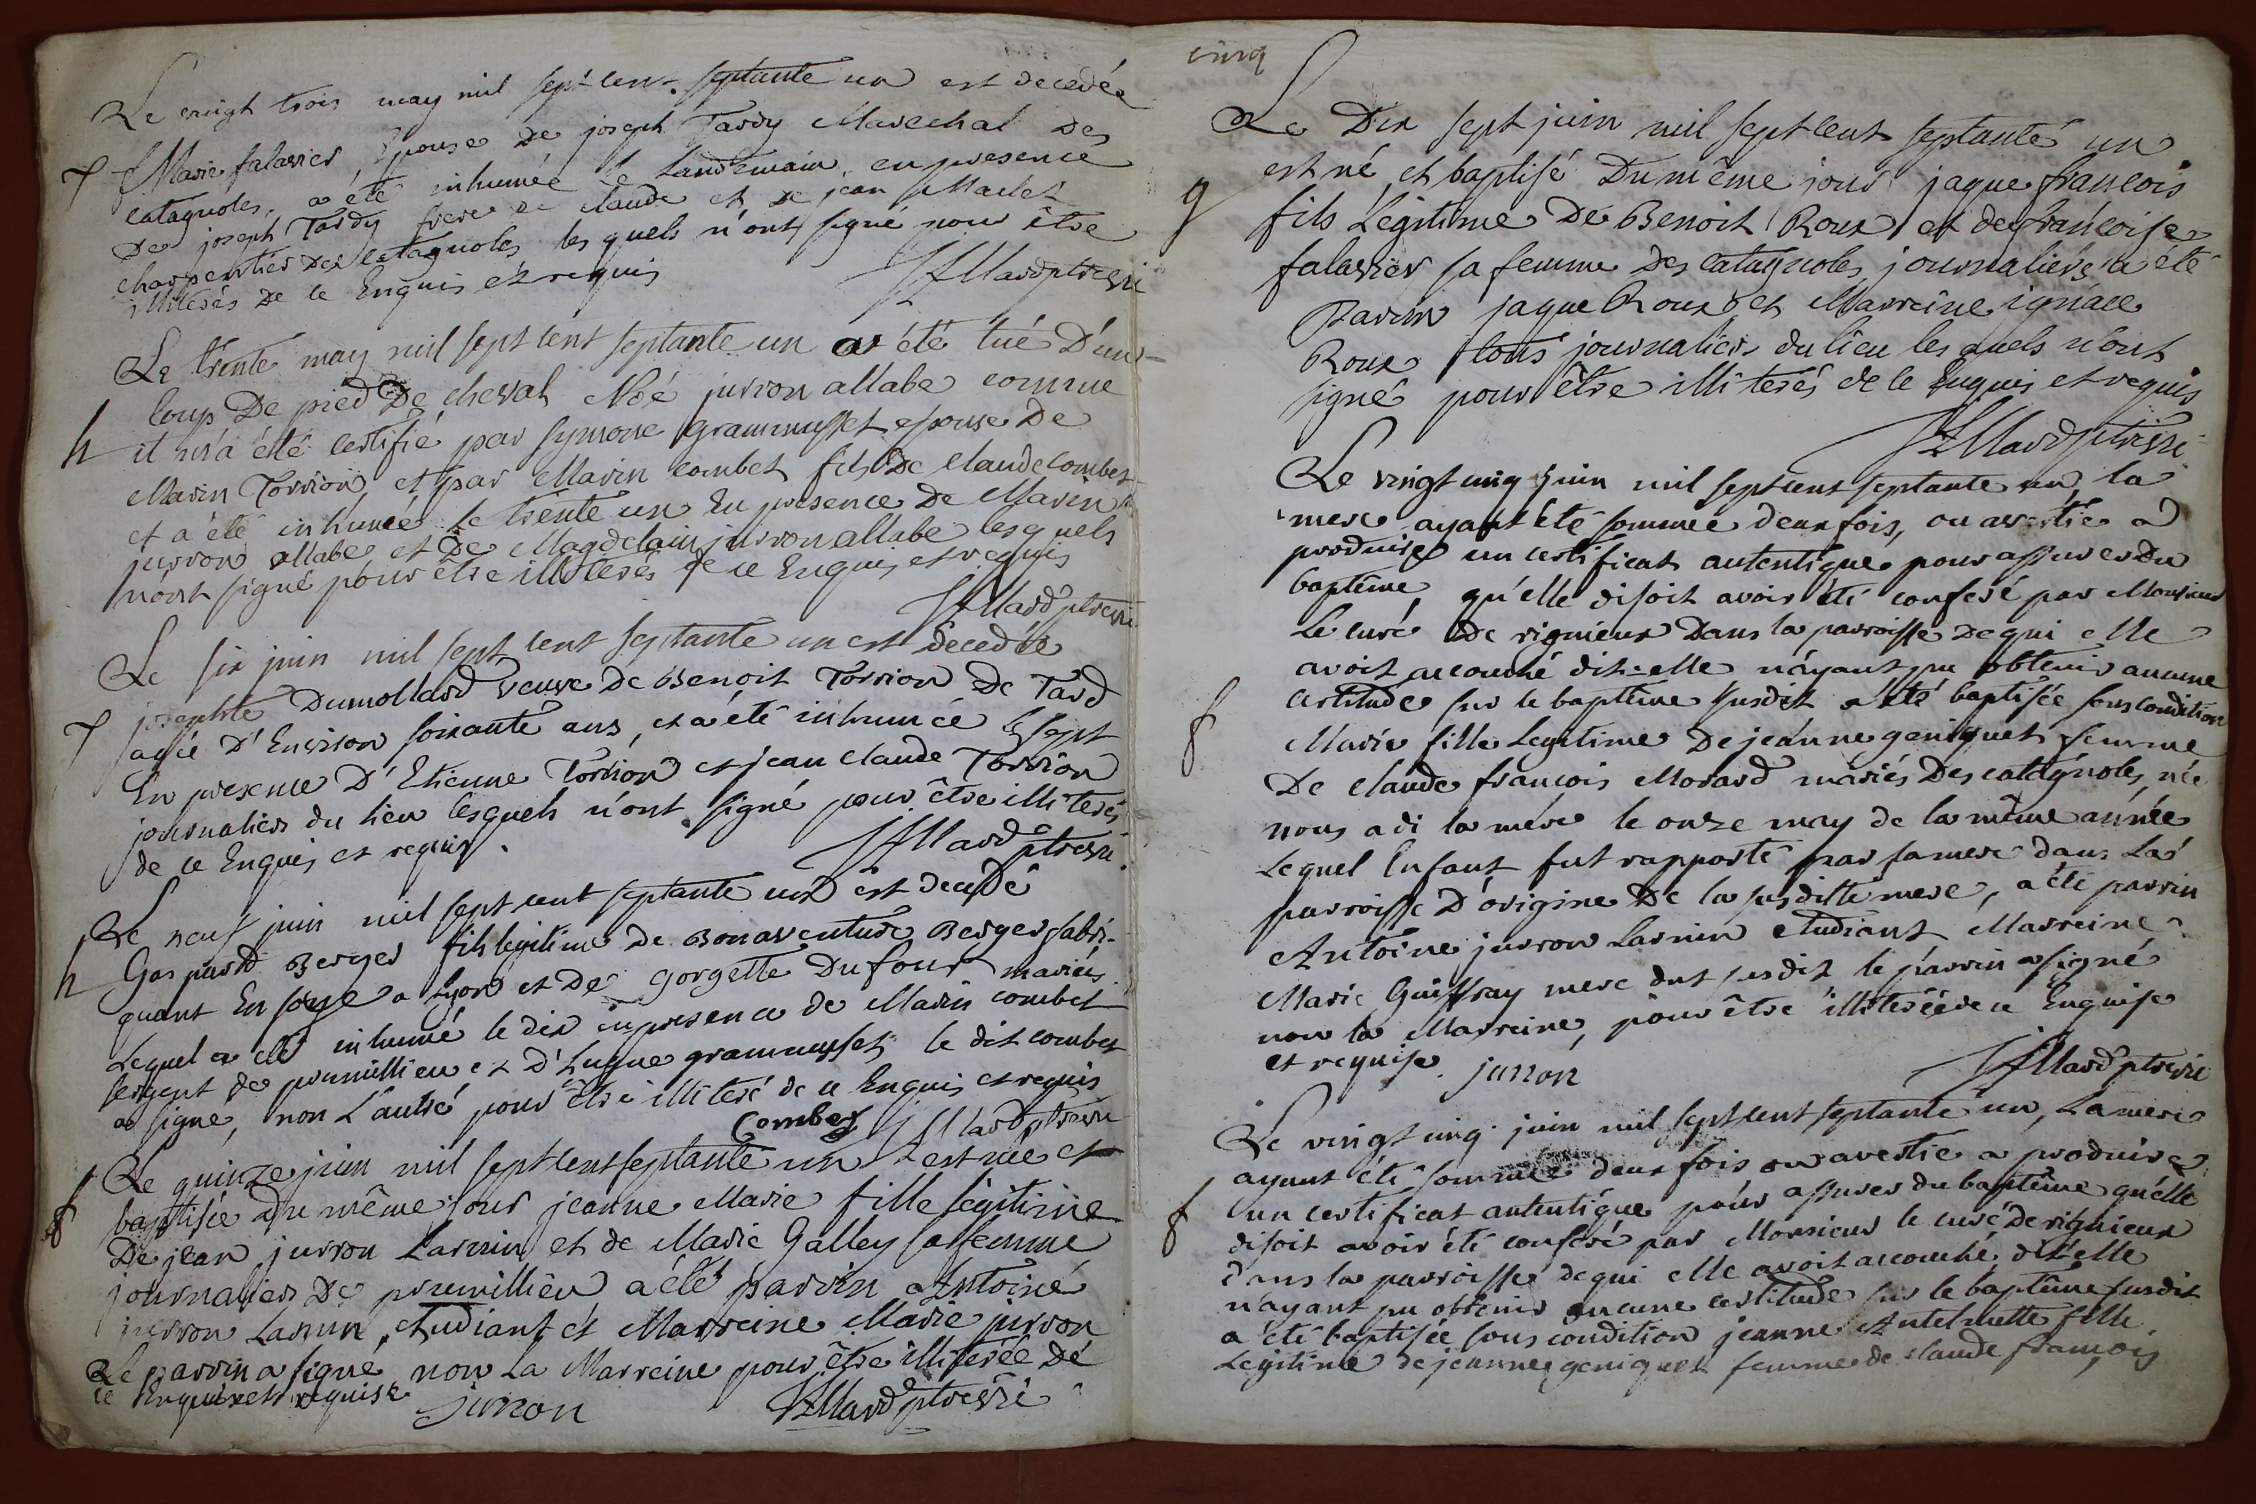 Le vingt trois may mil sept cent septante un est decedée
f Marie falavier, Epouse De joseph Tardy Marechal Des
catagnoles, a été inhumée le landemain, en presence
De joseph Tardy frere de Claude et De jean Maclet
charpentier Des catagnoles les quels n'ont signé pour être
illiterés de ce Enquis et requis
Mard ptre vri
Le trente may mil sept cent septante un a été tué D'un
coup De pied De cheval Noé jurron allabe comme
h il m'a été certifié par symone grammusset epouse De
Marin Torrion, et par Marin combet fils De Claude combet
et a été inhumé le trente un En presence De Marin
jurron allabe et De Magdelain jurron allabe lesquels
n'ont signé pour être illiterés de ce Enquis et requis
Mard ptre vri
Le six juin mil sept cent septante un est decedée
f josephte Dumollard veuve De Benoit Torrion De Tard
agée D'Environ soixante ans, et a été inhumée le sept
En presence D'Etienne Torrion et jean claude Torrion
journaliers du lieu lesquels n'ont signé pour être illiterés
de ce Enquis et requis.
Mard
ptre vri.
Le neuf juin mil sept cent septante un est decedé
h Gaspard Berger fils legitime De Bonaventure Berger fabri-
quant En soye a Lyon et De gorgette Dufour mariés
Lequel a été inhumé le dix en presence de Marin combet
sergent de proumillieu et D'Eugne grammusset le dit combet
a signe, non L'autre pour être illiteré de ce Enquis et requis
Combet Mard ptre vri
Le quinze juin mil sept cent septante un est née et
f baptisée du même jour jeanne Marie fille légitime
De jean jurron Larnin et de Marie Galley sa femme
journaliers De proumillieu a été parrin Antoine
jurron Larnin, etudiant et Marreine Marie jurron
Le parrin a signé non la Marreine pour être illiterée De
ce Enquise et requise
junon Mard ptre vri
cinq
Le Dix sept juin mil sept cent septante un
est né et baptisé Du même jour jaque francois
g fils Légitime De Benoit Roux et de francoise
falavier sa femme Des catagnoles journaliers a été
Parrin jaque Roux et Marreine ignace
Roux tous journaliers du lieu les quels n'ont
signé pour être illiterés de ce Enquis et requis
Mard ptre vri
Le vingt cinq juin mil sept cent septante un, la
mere ayant été sommée deux fois, ou avertie a
produire un certificat autentique pour assurer du
baptême qu'elle disoit avoir été conferé par Monsieur
Le curé De rignieux Dans la parroisse de qui elle
avoit accouché dit=elle n'ayant pu obtenir aucune
certitude sur le baptême susdit a été baptisée sous condition
f Marie fille Legitime De jeanne geniquet femme
De Claude francois Morard mariés Des catagnoles, née
nous a di la mére le onze may de la même année
Lequel Enfant fut rapporté par sa mere dans La
parroisse D'origine De la susditte mere, a été parrin
Antoine jurron Larnin etudiant Marreine
Marie Guiffray mere dut susdit le parrin a signé
non la Marreine, pour être illiterée de ce Enquise
et requise. junon
Mard ptre vri
Le vingt cinq juin mil sept cent septante un, La mere
ayant été sommée deux fois ou avertie a produire
f un certificat autentique pour assurer du baptême qu'elle
disoit avoir été conferé par Monsieur le curé De rignieux
dans la parroisse de qui elle avoit accouché, dit elle
n'ayant pu obtenir aucune certitude sur le baptême susdit
a été baptisée sous condition jeanne Antelmette fille
Legitime de jeanne geniquet femme de claude françois